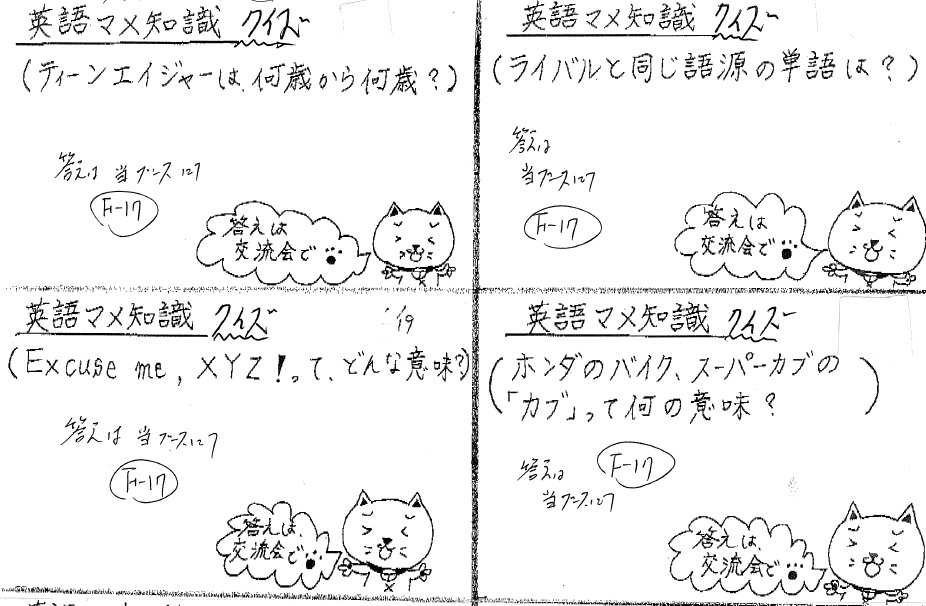 英語マメ知識 クイズ
(ティーンエイジャーは、何歳から何歳？)
答えは 当ブースにて
F-17
答えは
交流会で
英語マメ知識 クイズ
(ライバルと同じ語源の単語は？)
答えは
当ブースにて
F-17
答えは
交流会で
英語マメ知識 クイズ
(Excuse me, XYZ!って、どんな意味?)
答えは 当ブースにて
F-17
答えは、
交流会で
英語マメ知識 クイズ
(ホンダのバイク、スーパーカブの
「カブ」って何の意味？)
答えは
F-17
当ブースにて
答えは、
交流会で